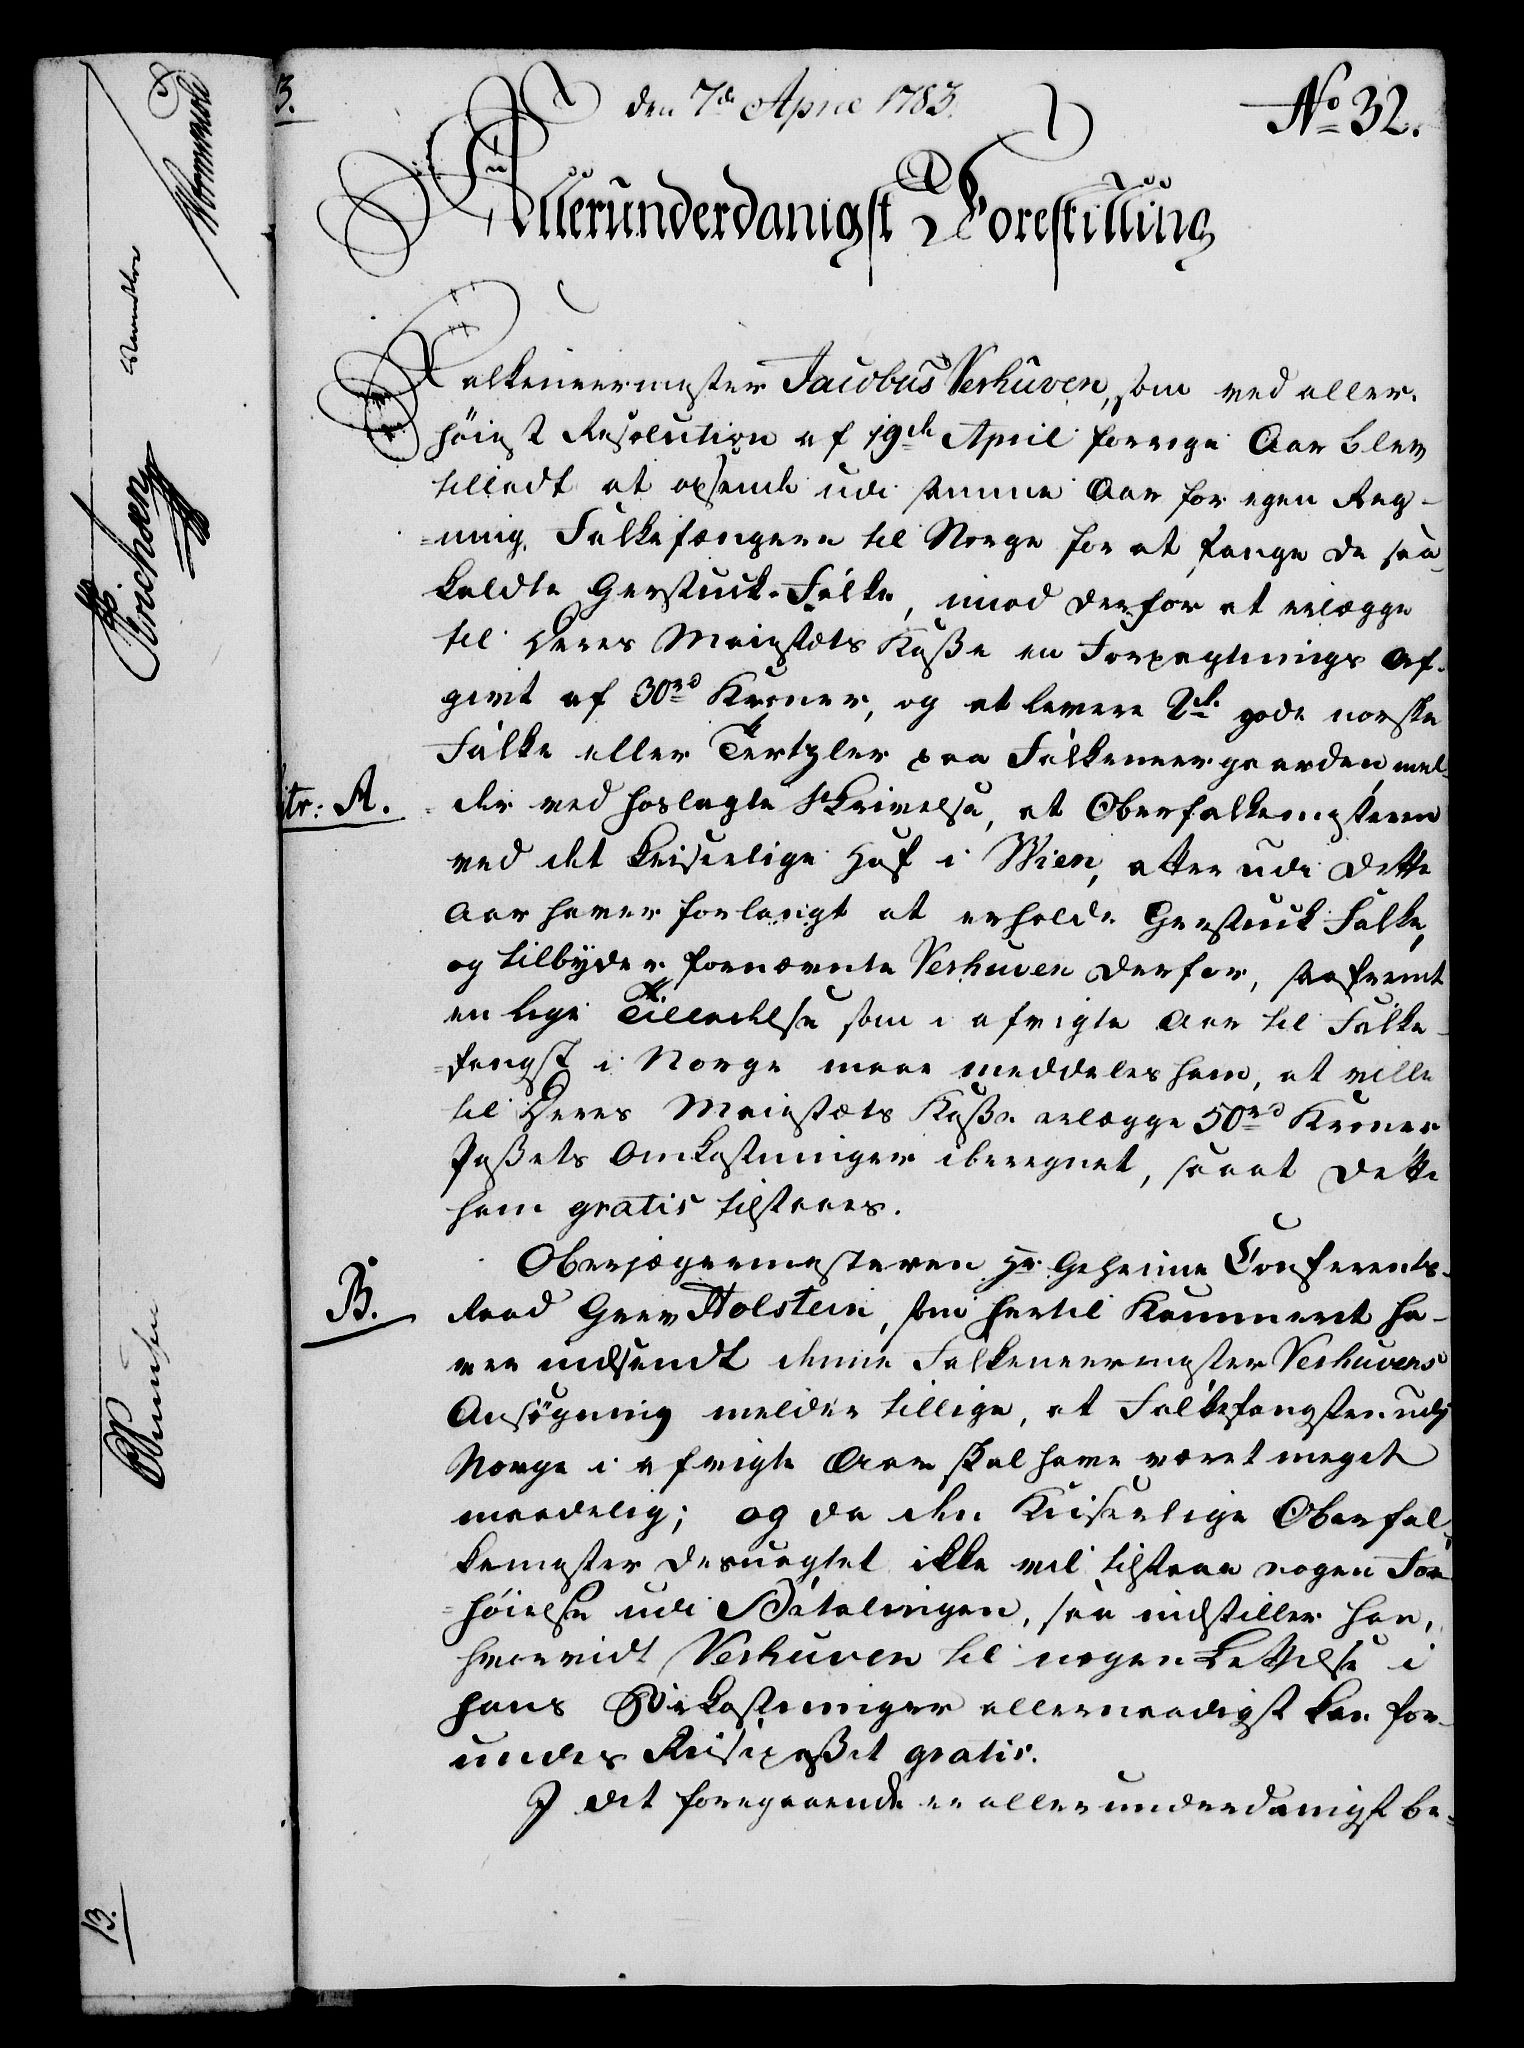 den 7de April 1783.
No 32.
Allerunderdanigst Forestilling
Falkeneermester Jacobus Verhuven, som ved aller-
höiest Resolution af 19de April forrige Aar blev
tilladt at opsende udi samme Aar for egen Reg-
=ning, Falkefængere til Norge for at fange de saa-
kaldte Gerstuck-Falke, imod derfor at erlægge
til Deres Majestæts Kaße en Forpagtnings Af-
givt af 30rd Kroner, og at levere 2de gode norske
Falke eller Tertzler paa Falkeneergaarden, mel-
Litr: A.
der ved hoslagte Skrivelse, at Oberfalkemesteren
ved det keiserlige Hof i Wien, atter udi dette
Aar haver forlangt at erholde Gerstuck Falke,
og tilbyder fornævnte Verhuven derfor, saafremt
en lige Tilladelse som i afvigte Aar til Falke-
=fangst i Norge maae meddeles ham, at ville
til Deres Majestæts Kaße erlægge 50rd Kroner
Paßets Omkostninger iberegnet, saa at dette
ham gratis tilstaaes.
B.
Oberjægermesteren Hr. Geheime Conferents-
Raad Grev Holstein, som hertil Kammeret ha-
ver indsendt denne Falkeneermester Verhuvens
Ansögning melder tillige, at Falkefangsten udj
Norge i afvigte Aar skal have været meget
maadelig; og da den Keiserlige Oberfal-
kemester desuagtet ikke vil tilstaae nogen For-
=höielse udi Betalingen, saa indstiller han,
hvorvidt Verhuven til nogen Lettelse i
hans Bekostninger allernaadigst kan for-
undes Reisepaßet gratis.
I det foregaaende er allerunderdanigst be-
13.